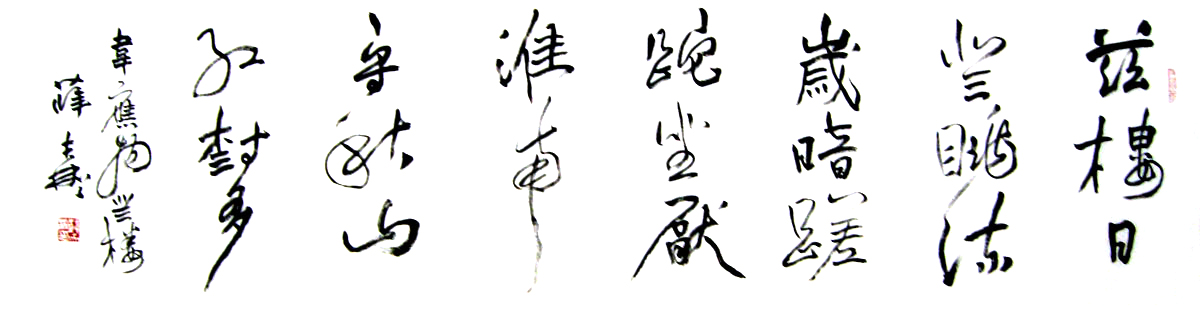 茲樓日
登眺流
歲暗蹉
跎坐厭
淮南
守秋山
紅樹多
韋應物登樓
薛